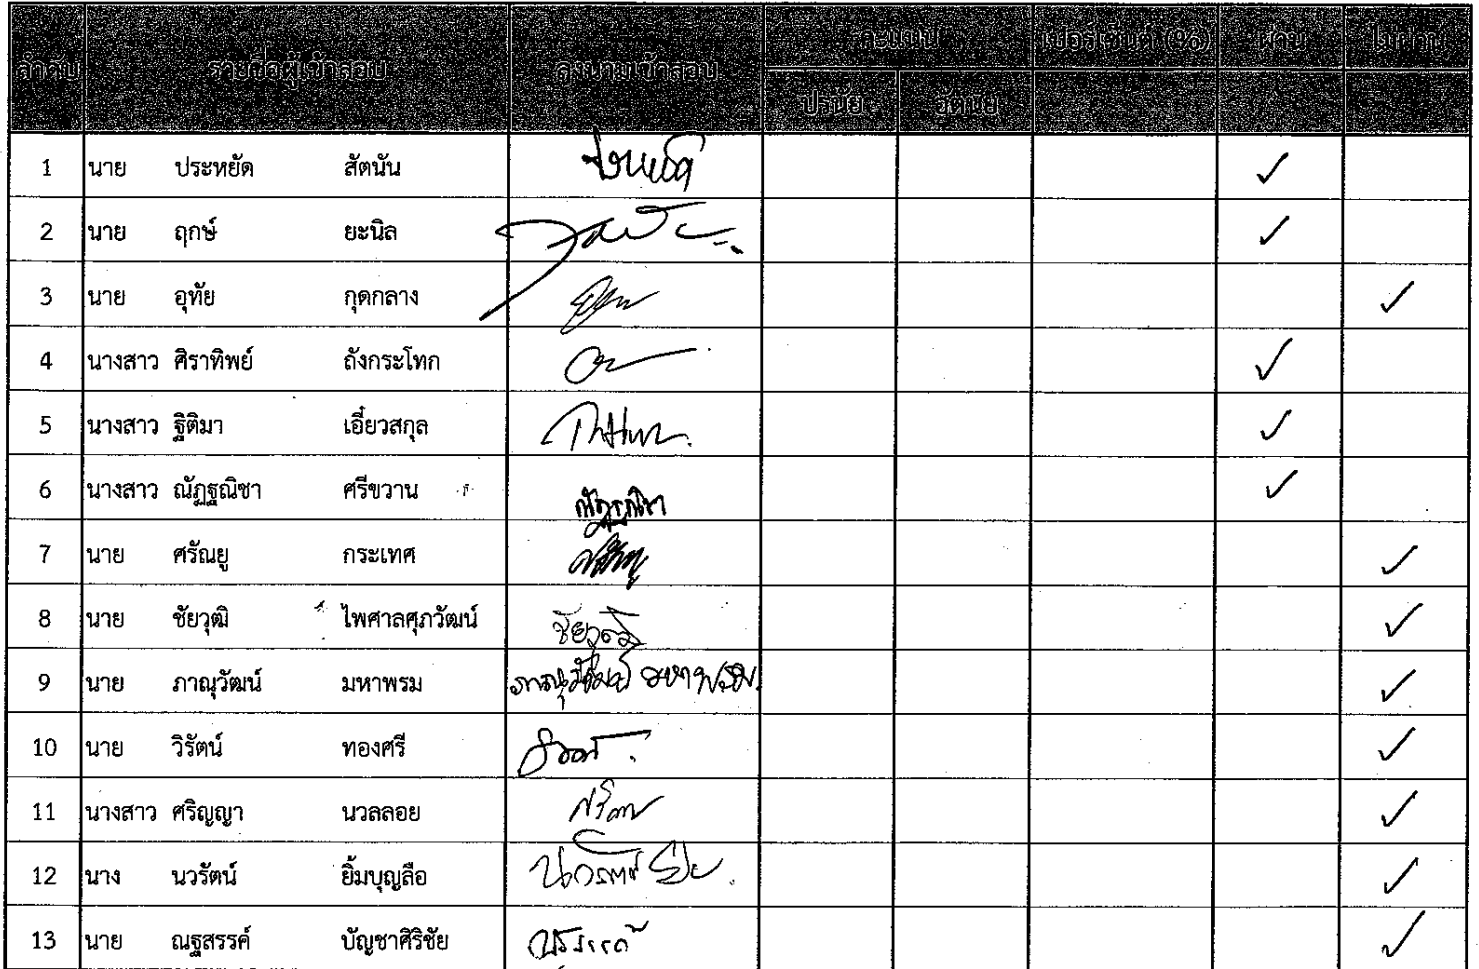 ลำดับ รายชื่อผู้เข้าสอบ ลงนามเข้าสอบ คะแนน เปอร์เซ็นต์ (%) ผ่าน ไม่ผ่าน
ปรนัย อัตนัย
1 นาย ประหยัด สัตนัน ✓
2 นาย ฤกษ์ ยะนิล ✓
3 นาย อุทัย กุดกลาง ✓
4 นางสาว ศิราทิพย์ ถังกระโทก ✓
5 นางสาว ฐิติมา เอี๋ยวสกุล ✓
6 นางสาว ณัฏฐณิชา ศรีขวาน ณัฏฐณิชา ✓
7 นาย ศรัณยู กระเทศ ✓
8 นาย ชัยวุฒิ ไพศาลศุภวัฒน์ ชัยวุฒิ ✓
9 นาย ภาณุวัฒน์ มหาพรม ภาณุวัฒน์ มหาพรม ✓
10 นาย วิรัตน์ ทองศรี ✓
11 นางสาว ศริญญา นวลลอย ✓
12 นาง นวรัตน์ ยิ้มบุญลือ ✓
13 นาย ณฐสรรค์ บัญชาศิริชัย ✓